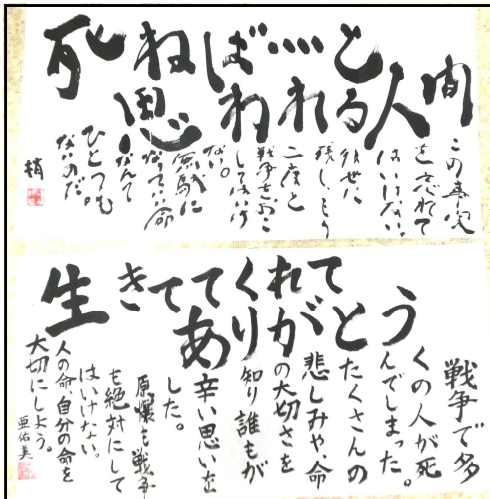 死ねば……と
思われる人間
この事実
を忘れて
はいけない。
後世に
残し、もう
二度と
戦争をおこ
してはいけ
ない。
無駄に
なっていい命
なんて
ひとつも
ないのだ。
梢
生きててくれて
ありがとう
戦争で多
くの人が死
んでしまった。
たくさんの
悲しみや、命
の大切さを
知り誰もが
辛い思いを
した。
原爆も戦争
も絶対にして
はいけない。
人の命、自分の命を
大切にしよう。
亜佑美